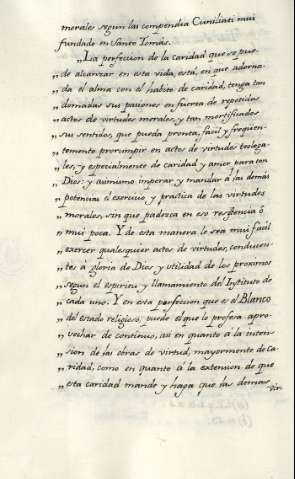 morales segun las compendia Cuniliati mui
fundado en Santo Tomàs.
„La perfeccion de la caridad que se pue-
„ de alcanzar en esta vida, està, en que adorna-
„ da el alma con el habito de caridad, tenga tan
„ domadas sus pasiones en fuerza de repetidos
„ actos de virtudes morales, y tan mortificados
„ sus sentidos, que pueda pronta, facil y freqüen-
„ temente prorumpir en actos de virtudes teologa-
„ les, y especialmente de caridad y amor para con
„ Dios; y asimismo imperar y mandar à las demàs
„ potencias el exercicio, y practica de las virtudes
„ morales, sin que padezca en eso resistencia ò
„ mui poca. Y de esta manera le sea mui facil
„ exercer qualesquier actos de virtudes, conducen-
„ te à gloria de Dios y utilidad de los proximos
„ segun el espiritu y llamamiento del Instituto de
„ cada uno. Y en esta perfeccion que es el Blanco
„ del estado religioso, puede el que lo profesa apro-
„ vechar de continuo, asi en quanto à la inten-
„ sion de las obras de virtud, mayormente de Ca-
„ ridad, como en quanto à la extension de que
„ esta caridad mande y haga que las demas
vir-